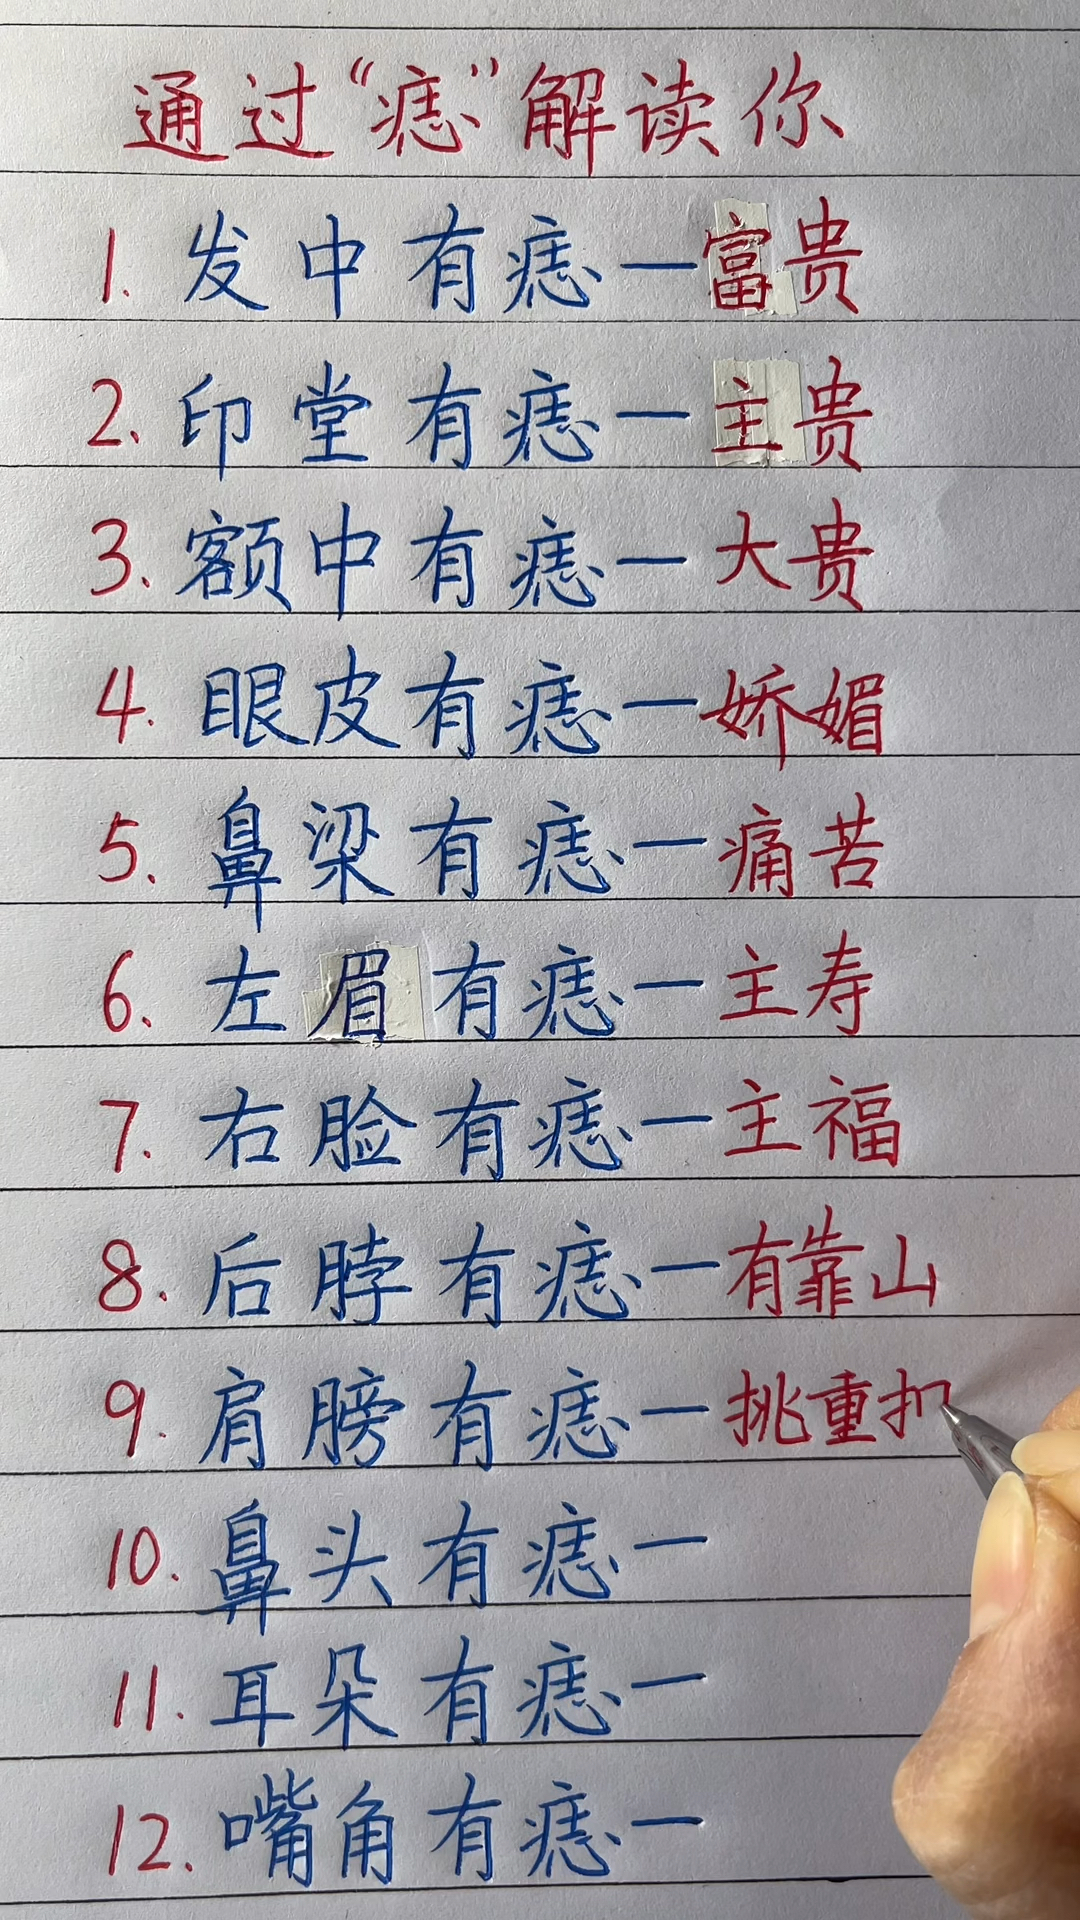 通过“痣”解读你
1. 发中有痣一富贵
2. 印堂有痣一主贵
3. 额中有痣一大贵
4. 眼皮有痣一娇媚
5. 鼻梁有痣一痛苦
6. 左眉有痣一主寿
7. 右脸有痣一主福
8. 后脖有痣一有靠山
9. 肩膀有痣一挑重
10. 鼻头有痣一
11. 耳朵有痣一
12. 嘴角有痣一